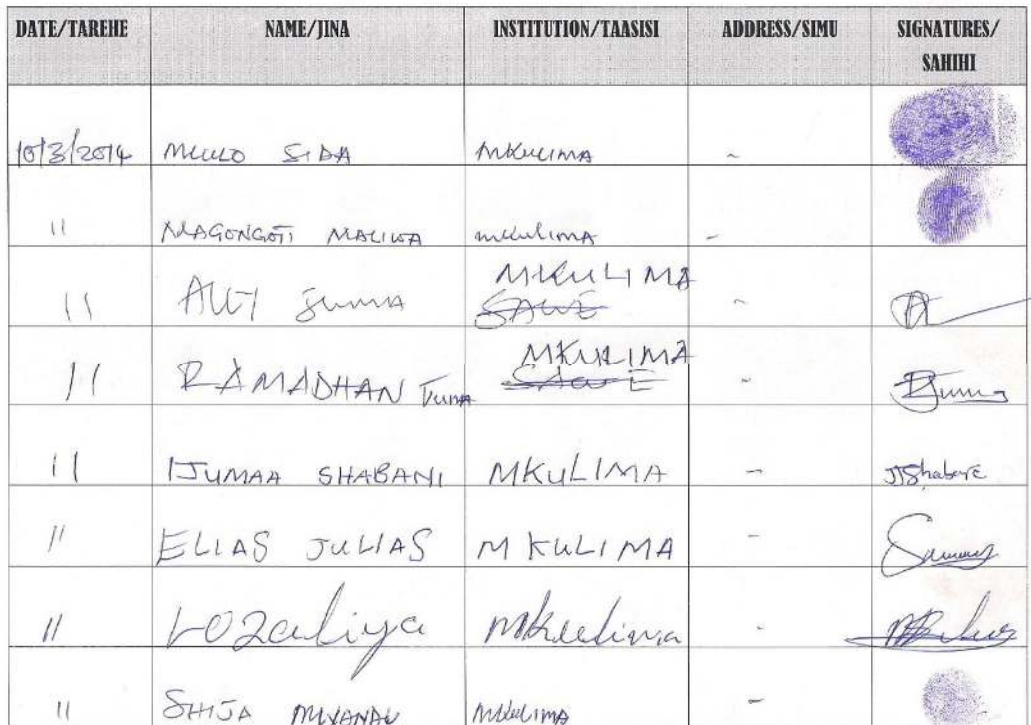 DATE/TAREHE NAME/JINA INSTITUTION/TAASISI ADDRESS/SIMU SIGNATURES/
SAHIHI
10/3/2014 SIDA MKULIMA ~
11 MAGONGOTI MALIWA mkulima -
11 ALLY Juma MKULIMA ~
11 RAMADHAN Juma MKULIMA ~
11 IJUMAA SHABANI MKULIMA -
11 ELIAS JULIAS MKULIMA -
11 Lozaliya Mkulima -
11 SHIJA Mkulima -